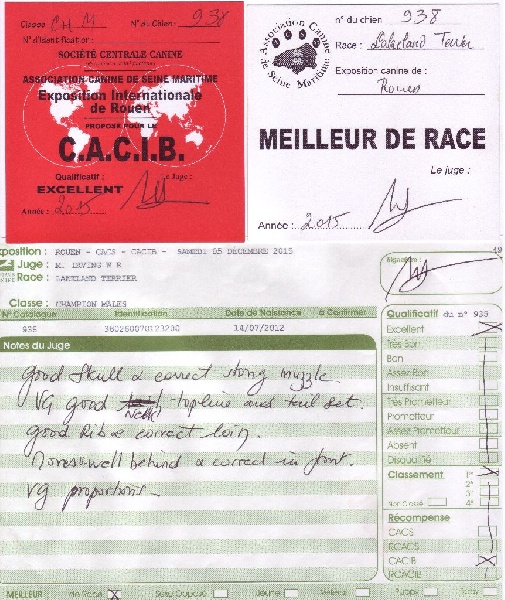 Classe CH M N° du Chien : 938
N° d'Identification :
SOCIÉTÉ CENTRALE CANINE
ASSOCIATION CANINE DE SEINE MARITIME
Exposition Internationale
de Rouen
PROPOSÉ POUR LE
C.A.C.I.B.
Qualificatif : Le Juge :
EXCELLENT
Année : 2015
Association Canine
de Seine Maritime
n° du chien 938
Race : Lakeland Terrier
Exposition canine de :
Rouen
MEILLEUR DE RACE
Le juge :
Année : 2015
xposition : ROUEN - CACS - CACIB - SAMEDI 05 DECEMBRE 2015 49
Juge : M. IRVING W R
Race : LAKELAND TERRIER
Signature :
Classe : CHAMPION MALES
N° Catalogue Identification Date de Naissance à Confirmer
938 14/07/2012
Notes du Juge
good Skull & correct strong muzzle.
VG good Neck topline and tail set.
good Rib & correct loin.
Moves well behind & correct in front.
VG proportions
Qualificatif du n° 938
Excellent
Très Bon
Bon
Assez Bon
Insuffisant
Très Prometteur
Prometteur
Assez Prometteur
Absent
Disqualifié
Classement 1er
2e
3e
Non Classé 4e
Récompense
CACS
RCACS
CACIB
RCACIB
MEILLEUR de Race X Sexe Opposé Jeune Vétéran Puppy Baby